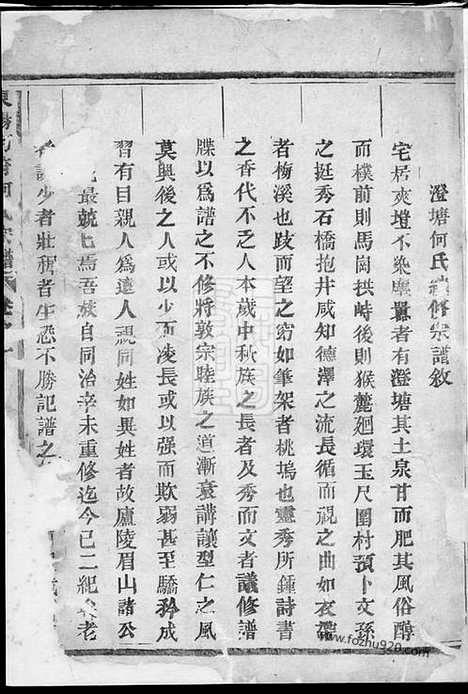 澄塘何氏續修宗譜敘
宅居爽塏不染塵囂者有澄塘其土泉甘而肥其風俗醇
而樸前則馬崗拱峙後則猴麓廻環玉尺圍村預卜文孫
之挺秀石橋抱井咸知德澤之流長循而視之曲如衣帶
者梅溪也跂而望之窮如筆架者桃塢也靈秀所鍾詩書
之香代不乏人本歲中秋族之長者及秀而文者議修譜
牒以為譜之不修將敦宗睦族之道漸衰講讓型仁之風
莫興後之人或以少而凌長或以強而欺弱甚至驕矜成
習有目親人為遠人視同姓如異姓者故廬陵眉山諸公
最兢兢焉吾族自同治辛未重修迄今已二紀矣老
者謝少者壯稱者生恐不勝記譜之
東陽何氏宗譜
www.fozhu920.com